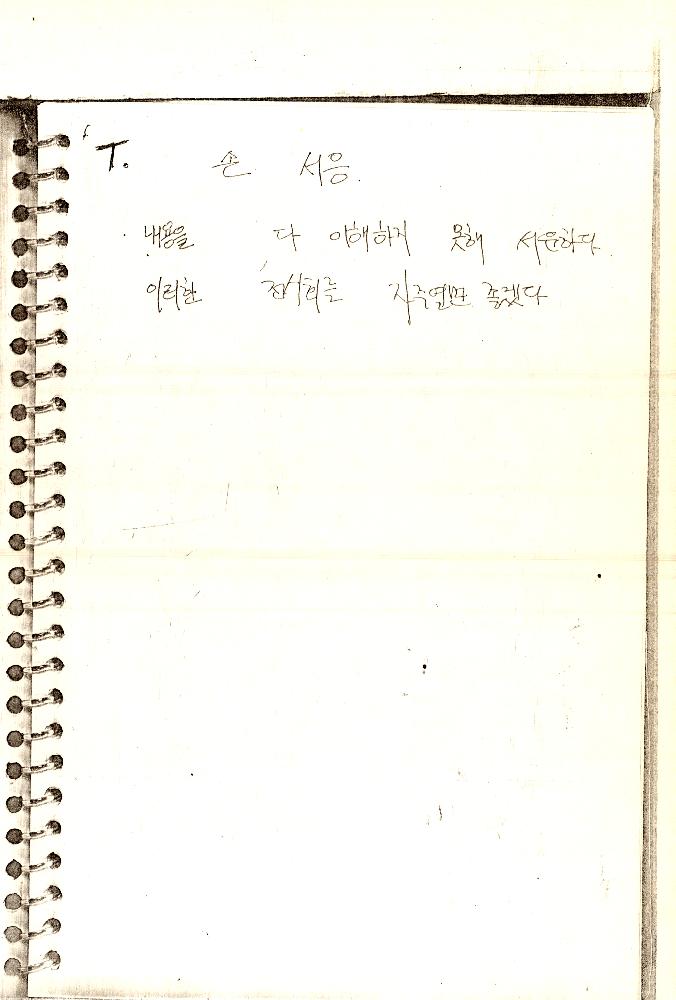 T. 손 서응.
내용을 다 이해하지 못해 서운하다.
이러한 전시회를 자주열면 좋겠다